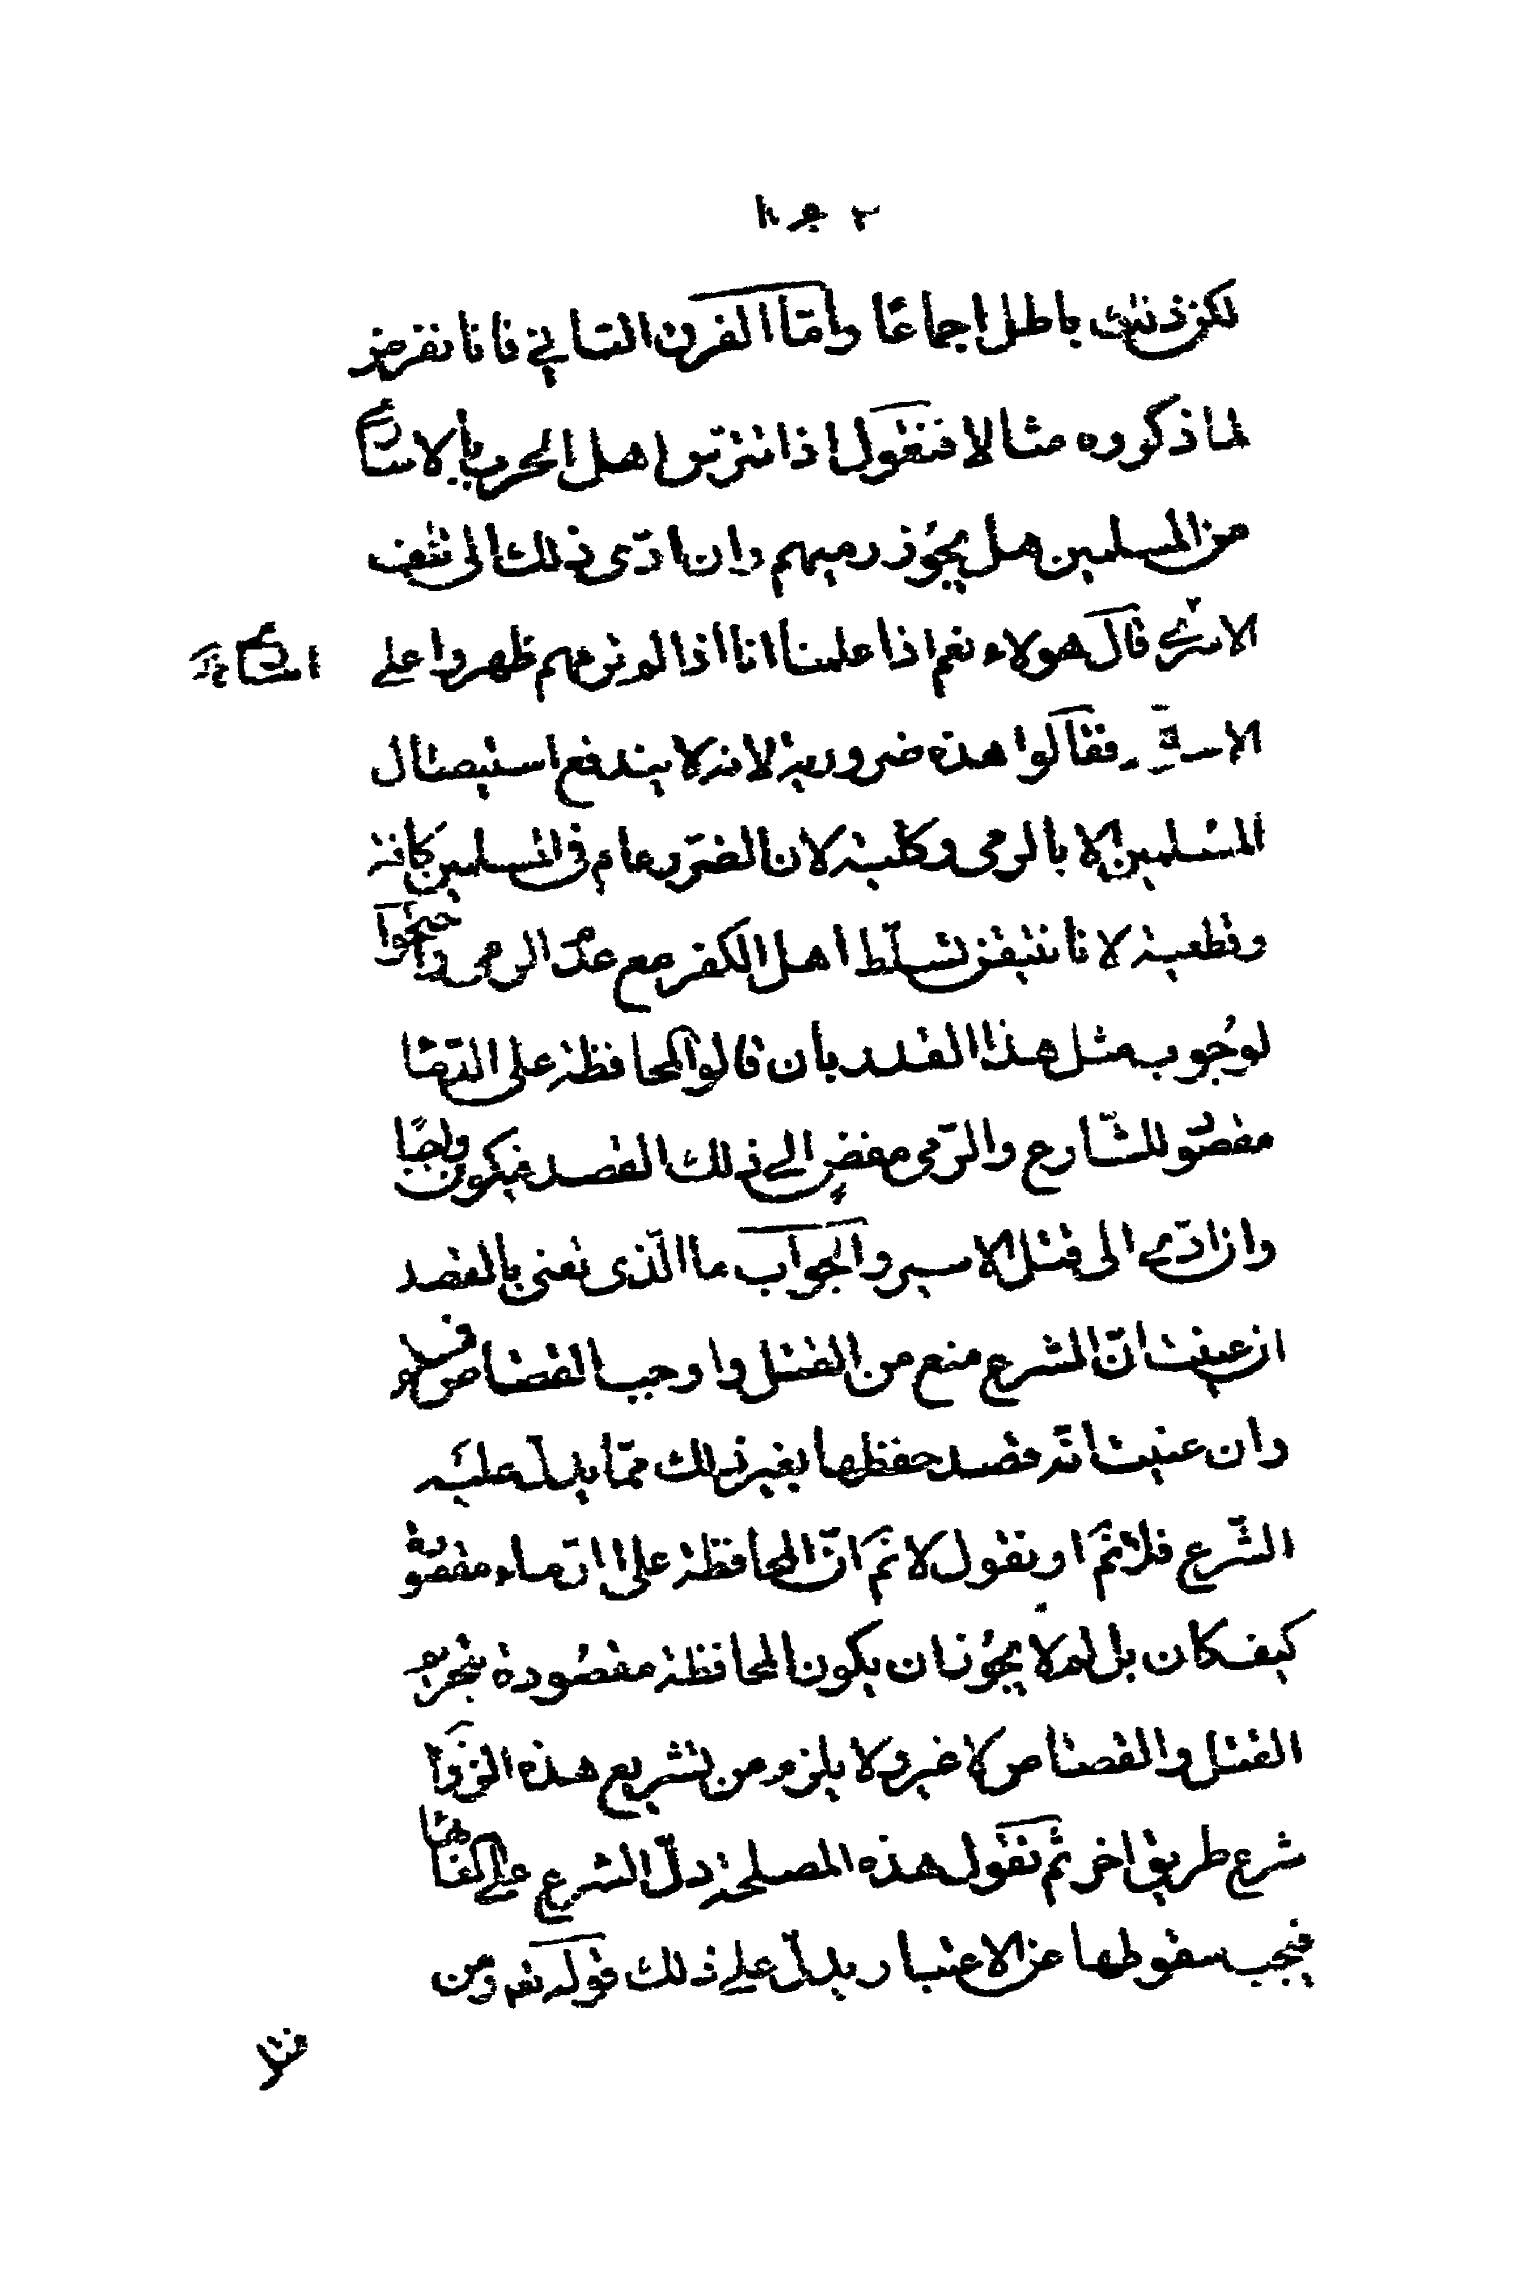 لكن ذلك باطل اجماعًا واما الفرق الثاني فانا نفرض
لما ذكروه مثالا فنقول اذا تترّس اهل الحرب بالاسارى
من المسلمين هل يجوز رميهم وان ادّى ذلك الى تلف
الاسرى قال هولاء نعم اذا علمنا انا اذا لم نرمهم ظهروا على
فقالوا هذه ضرورية لانه لا يندفع استيصال
المسلمين الا بالرمى وكلية لان الضّرر عام فى المسلمين كافة
وقطعية لانا نتيقن تسلّط اهل الكفر مع عدم الرمى واحتجوا
لوجوب مثل هذا القدر بأن قالوا المحافظة على الدّما
مقصود للشّارع والرّمى مفض الى ذلك القصد فيكون واجبًا
وان ادّى الى قتل الاسير والجواب ما الّذى تعنى بالقصد
ان عنيت انّ الشرع منع من القتل واوجب القصاص
وان عنيت انّه قصد حفظها بغير ذلك ممّا يدل عليه
الشّرع فلا ثمّ او نقول لا ثمّ انّ المحافظة على الدّماء مقصود
كيف كان بل لم لا يجوز ان يكون المحافظة مقصودة بتحريم
القتل والقصاص لا غير ولا يلزم من تشريع هذه الزواجر
شرع طريق اخر ثم نقول هذه المصلحة دلّ الشرع على الغائها
فيجب سقوطها عن الاعتبار يدل على ذلك قوله تعه ومن